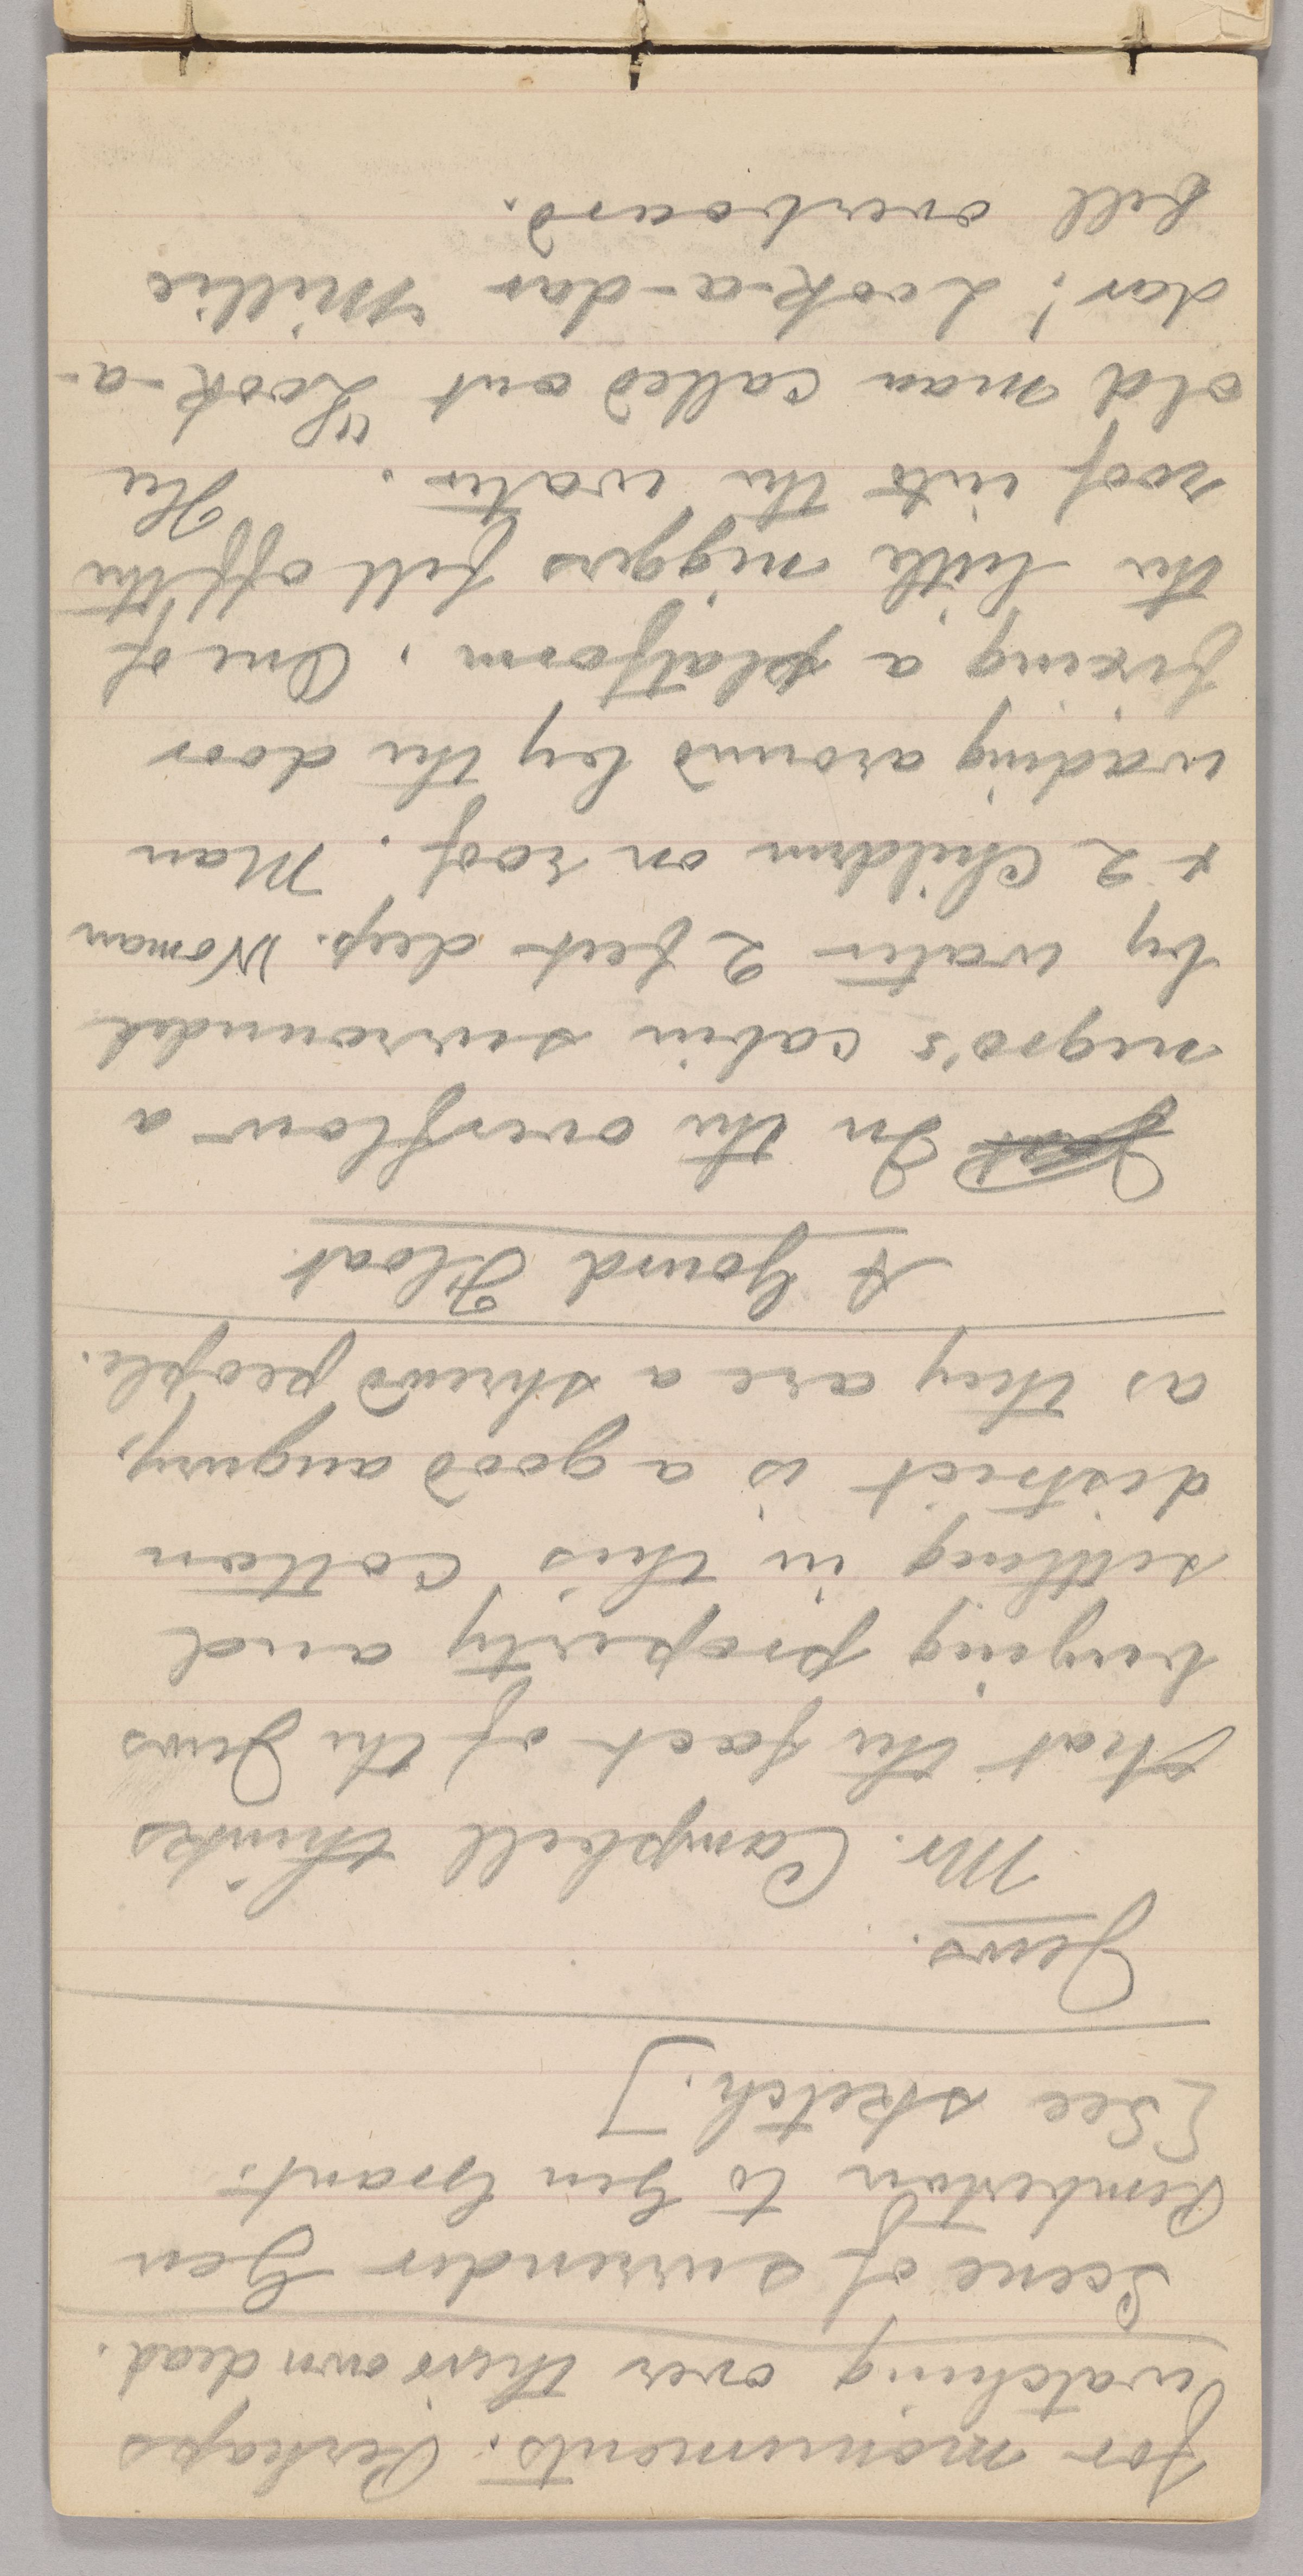 for monuments. Perhaps
watching over their own dead.
Scene of surrender Gen
Pemberton to Gen Grant.
[See sketch.]
Jews.
Mr. Campbell thinks
that the fact of the Jews
buying property and
settling in this cotton
district is a good augury,
as they are a shrewd people.
A Gourd Float
In the overflow a
negro's cabin surrounded
by water 2 feet deep. Woman
+ 2 children on roof. Man
wading around by the door
fixing a platform. One of
the little niggers fell off the
roof into the water. The
old man called out "Look-a-
dar! Look-a-dar Millie
fell overboard.